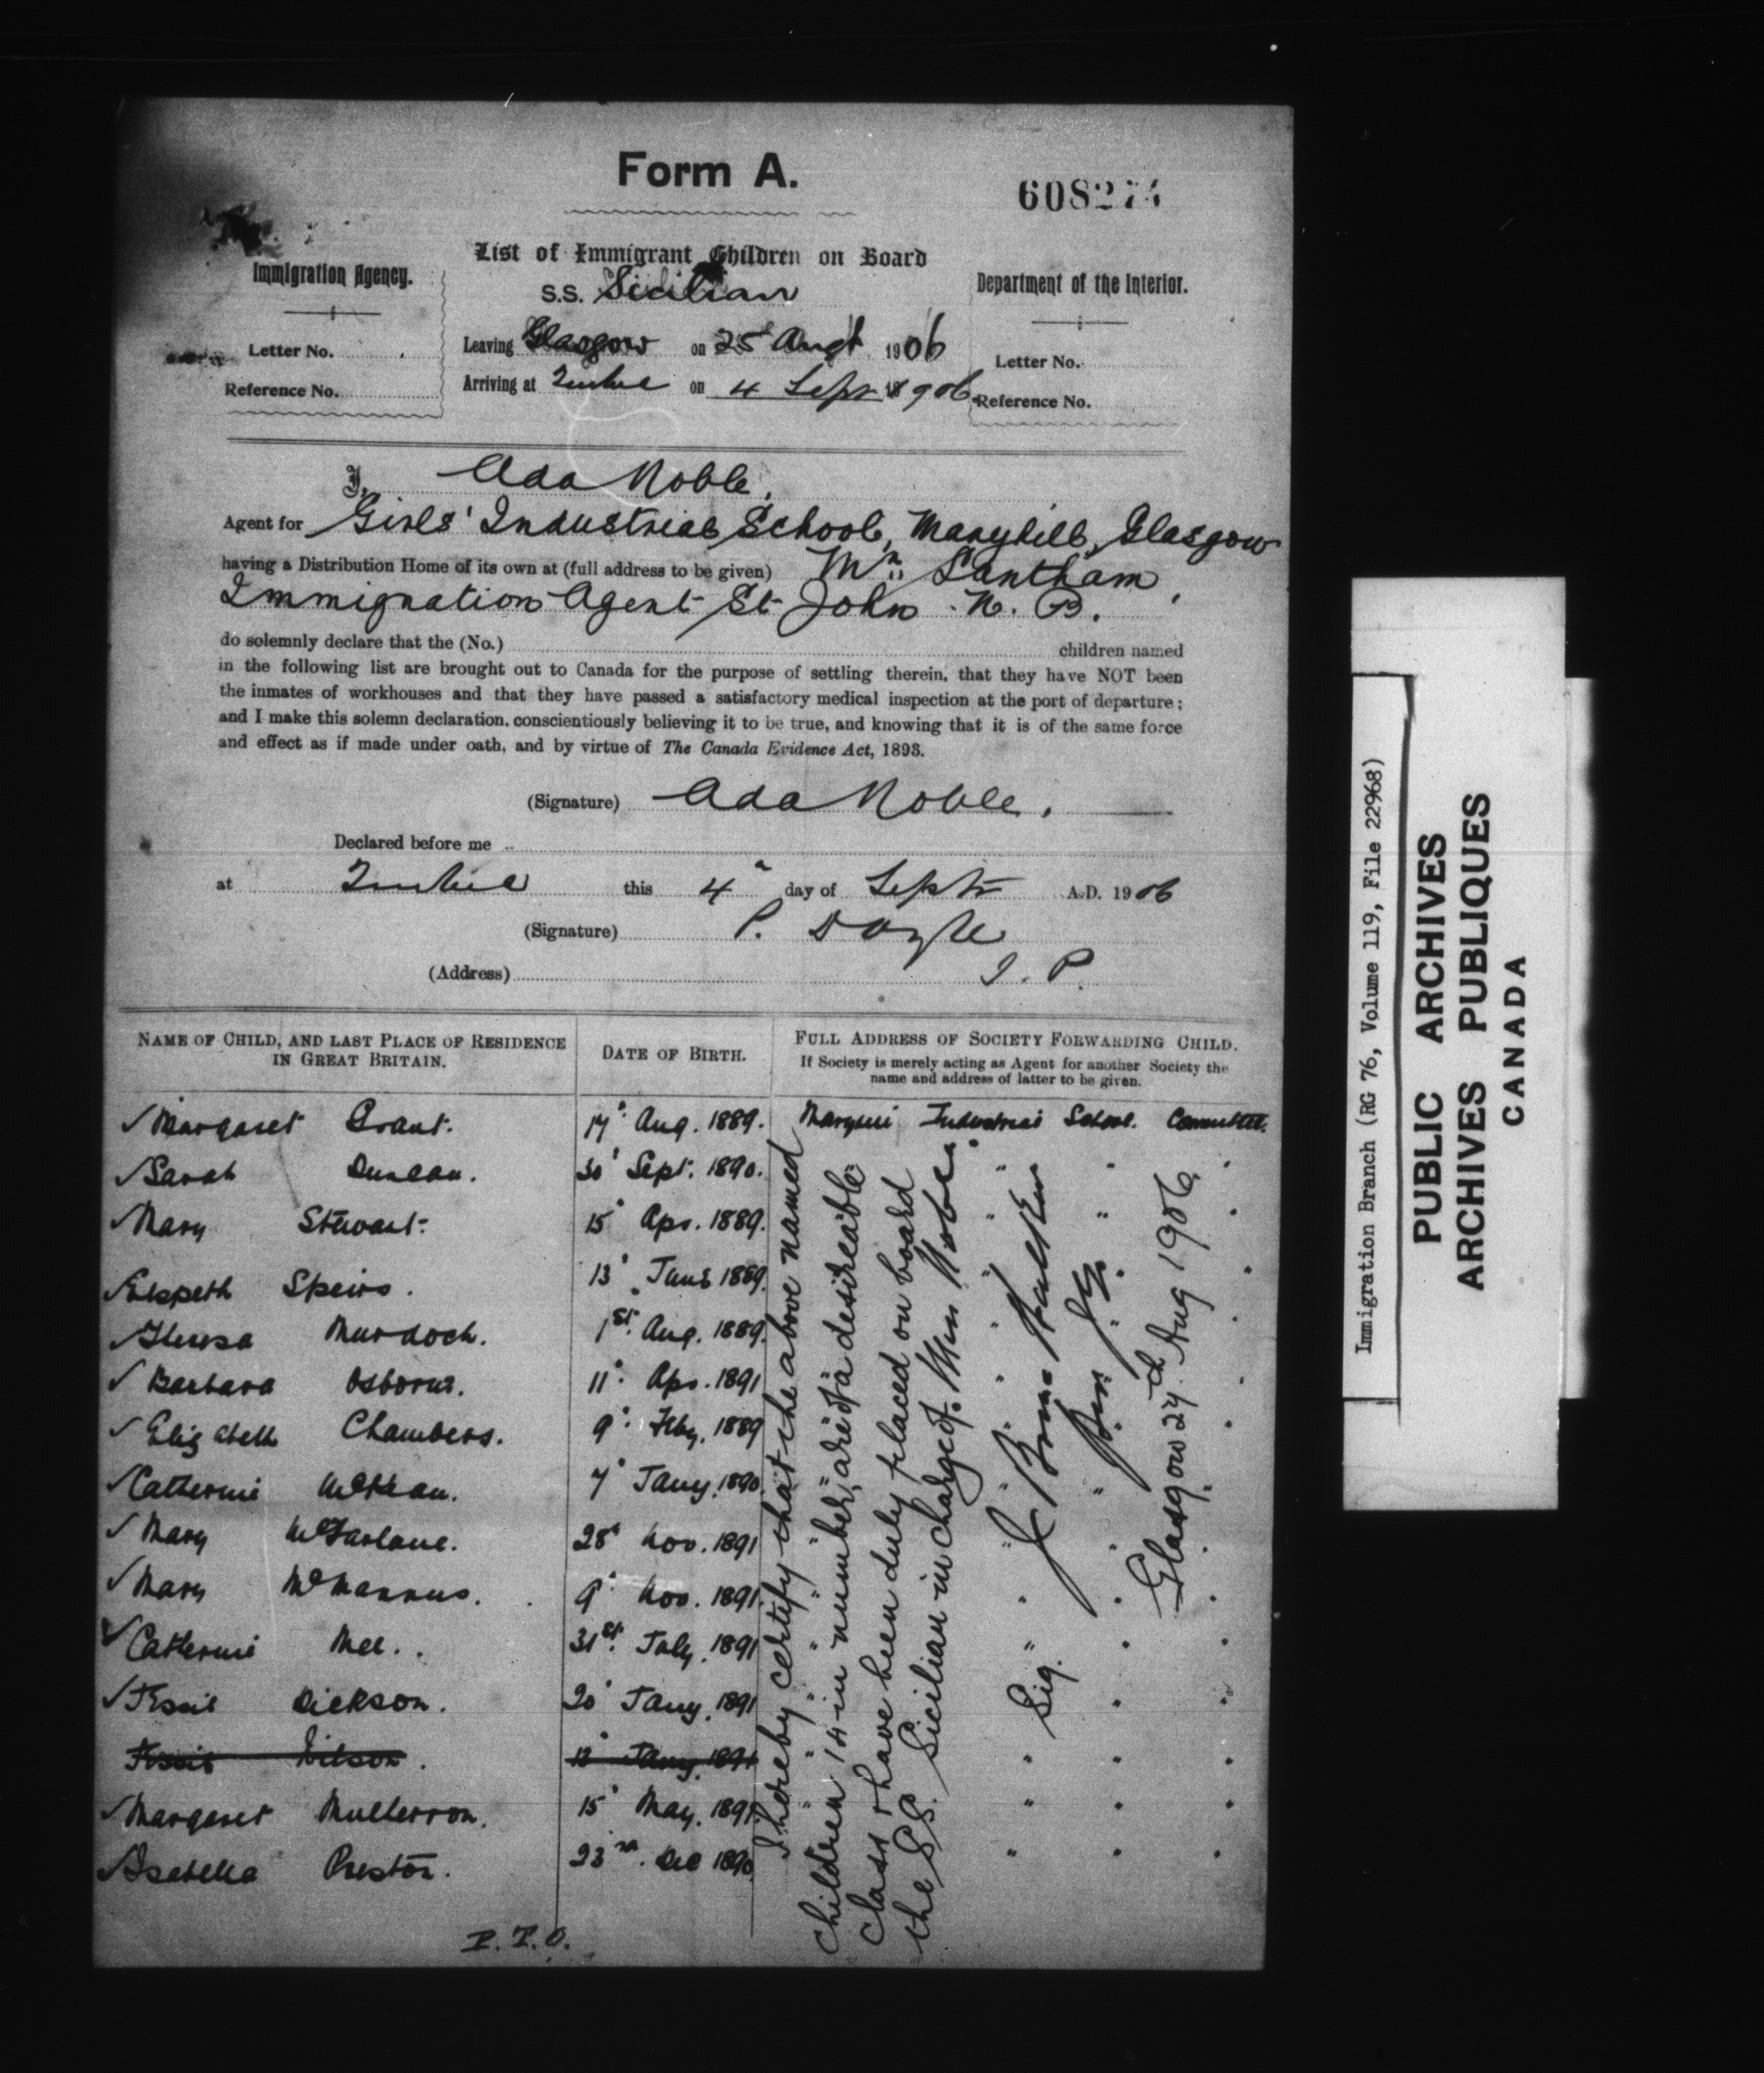 Form A.
608274
List of Immigrant Children on Board
S.S. Sicilian
Immigration Agency.
Letter No.
Reference No.
Leaving Glasgow on 25 Augt 1906
Arriving at Quebec on 4 Sept 1906
Department of the Interior.
Letter No.
Reference No.
I, Ada Noble,
Agent for Girls' Industrial School, Maryhill, Glasgow
having a Distribution Home of its own at (full address to be given) Mr. Lantham,
Immigration Agent St John N. B.
do solemnly declare that the (No.) children named
in the following list are brought out to Canada for the purpose of settling therein, that they have NOT been
the inmates of workhouses and that they have passed a satisfactory medical inspection at the port of departure;
and I make this solemn declaration, conscientiously believing it to be true, and knowing that it is of the same force
and effect as if made under oath, and by virtue of The Canada Evidence Act, 1893.
(Signature) Ada Noble.
Declared before me
at Quebec this 4" day of Sept A.D. 1906
(Signature) P. Doyle
J. P.
(Address)
NAME OF CHILD, AND LAST PLACE OF RESIDENCE
IN GREAT BRITAIN.
DATE OF BIRTH.
FULL ADDRESS OF SOCIETY FORWARDING CHILD.
If Society is merely acting as Agent for another Society the
name and address of latter to be given.
✓ Margaret Grant. Aug. 1889. Maryhill Industrial School. Committee.
✓ Sarah Duncan. 30 Sept. 1890. " " "
✓ Mary Stewart. 15 Apr. 1889. " " "
✓ Elspeth Speirs. 13 June 1889. " " "
✓ Theresa Murdoch. 1st. Aug. 1889. " " "
✓ Barbara Osborne. 11 Apr. 1891 " " "
✓ Elizabeth Chambers. 9 Feby. 1889 " " "
✓ Catherine McKean. 7 Jany. 1890. " " "
✓ Mary McFarlane. 28 Nov. 1891 " " "
✓ Mary McMannus. 9 Nov. 1891. " " "
✓ Catherine Mee. 31st. July. 1891 " " "
✓ Jessie Dickson. 20 Jany. 1891 " " "
Jessie Wilson. 12 Jany. 1891 " " "
✓ Margaret Mulherron. 15 May. 1891. " " "
✓ Isabella Preston. 23rd. Dec 1890. " " "
P.T.O.
I hereby certify that the above named
children 14 in number, are of a desireable
class & have been duly placed on board
the S.S. Sicilian in charge of Miss Noble.
Sig.
Glasgow 27th Aug 1906
Immigration Branch (RG 76, Volume 119, File 22968)
PUBLIC ARCHIVES
ARCHIVES PUBLIQUES
CANADA